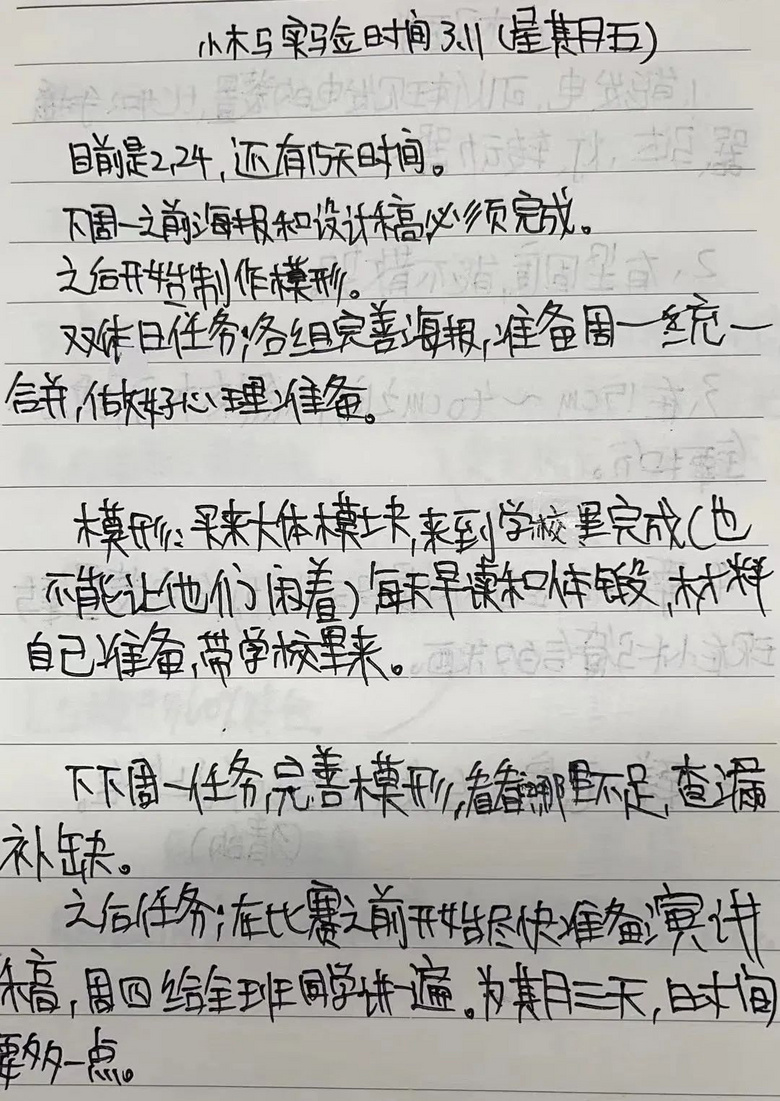 小木马实验时间3.11(星期五)
目前是2.24,还有15天时间。
下周一之前海报和设计稿必须完成。
之后开始制作模形。
双休日任务:各组完善海报,准备周一统一
合并,做好心理准备。
模形:买来大体模块,来到学校里完成(也
不能让他们闲着)每天早读和体锻,材料
自己准备,带学校里来。
下下周一任务,完善模形,看看哪里不足,查漏
补缺。
之后任务:在比赛之前开始尽快准备演讲
稿,周四给全班同学讲一遍。为期三天,时间
要多一点。